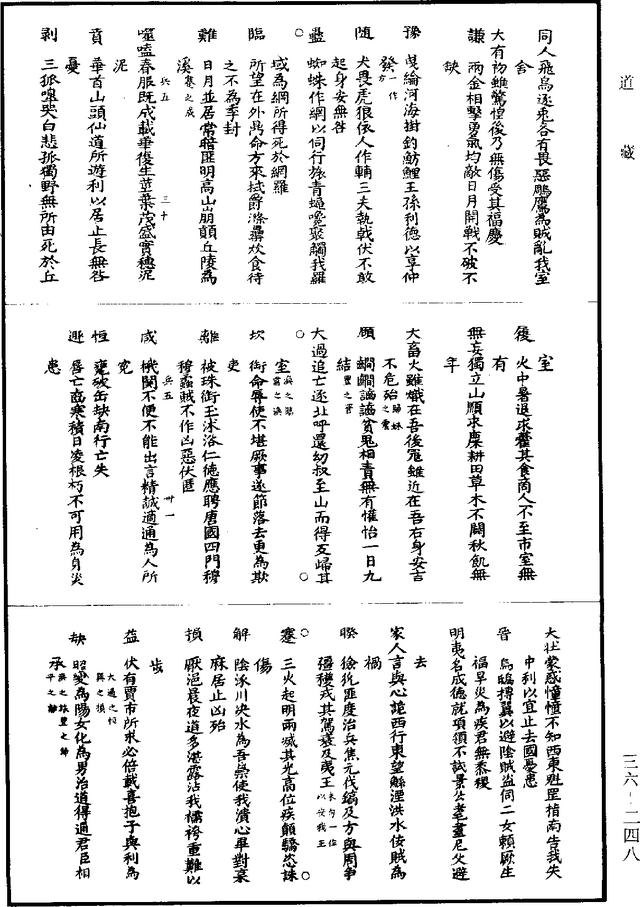 道藏
同人飛鳥逐兔各有畏惡鵰鷹為賊亂我室
舍
大有初雖驚惶後乃無傷受其福慶
謙　兩金相擊勇氣均敵日月鬭戰不破不
缺
豫　皮綸河海樹釣魴鯉王孫利德以享仲
發一作方
隨　犬畏虎狼依人作輔三夫執戟伏不敢
起身安無咎
蠱　蜘蛛作網以伺行旅青蠅嚵聚觸我羅
○　域為網所得死於網羅
臨　所望在外鼎命方來拭爵滌罍炊食待
之不為季封
離　日月並居常暗匪明高山崩顛丘陵為
溪
噬嗑春服既成載華復生莖葉茂盛實穗泥
泥　兵五　三十
賁　華首山頭仙道所遊利以居止長無咎
憂
剥　三狐嘷哭自悲孤獨野無所由死於丘
室
復　火中暑退求藿其食商人不至市室無
有
無妄獨立山顛求麋耕田草木不闢秋飢無
年
大畜火雖熾在吾後冦雖近在吾右身安吉
不危殆
頤　𧮪𧮪謫謫貧鬼相責無有懽怡一日九
結
大過追亡逐北呼還幼叔至山而得反歸其
○　室　○
坎　銜命辱使不堪厥事遂節落去更為欺
吏
離　被珠銜玉沐浴仁德應聘唐國四門穆
穆蟊賊不作凶惡伏匿
咸　機關不便不能出言精誠適通為人所
寃　兵五　卅一
恒　甕破缶缺南行亡失
遯　㬥亡為寒積日凌根朽不可用為身災
患
大壯蒙惑憧憧不知西東魁罡指南告我失
中利以宜止去國憂患
晉　烏鵰搏翼以避陰賊盜伺二女賴厥生
福旱災為疾君無黍稷
明夷名成德就項領不試景公耄盡尼父避
去
家人言與心詭西行東望鯀湮洪水佞賊為
禍
睽　獫狁匪度治兵焦元伐鎬及方與周爭
疆玁戎其駕衰及夷王
蹇　三火起明雨滅其光高位疾顛驕恣誅
○　傷　○
解　陰涿川決水為吾祟使我潰心畢對棄
麻居止凶殆
損　厭浥晨夜道多湛露沾我襦袴重難以
步
益　伏有賈市所求必倍載喜抱子與利為
夬　昭變為陽女化為男治道得通君臣相
承
三六—二四八